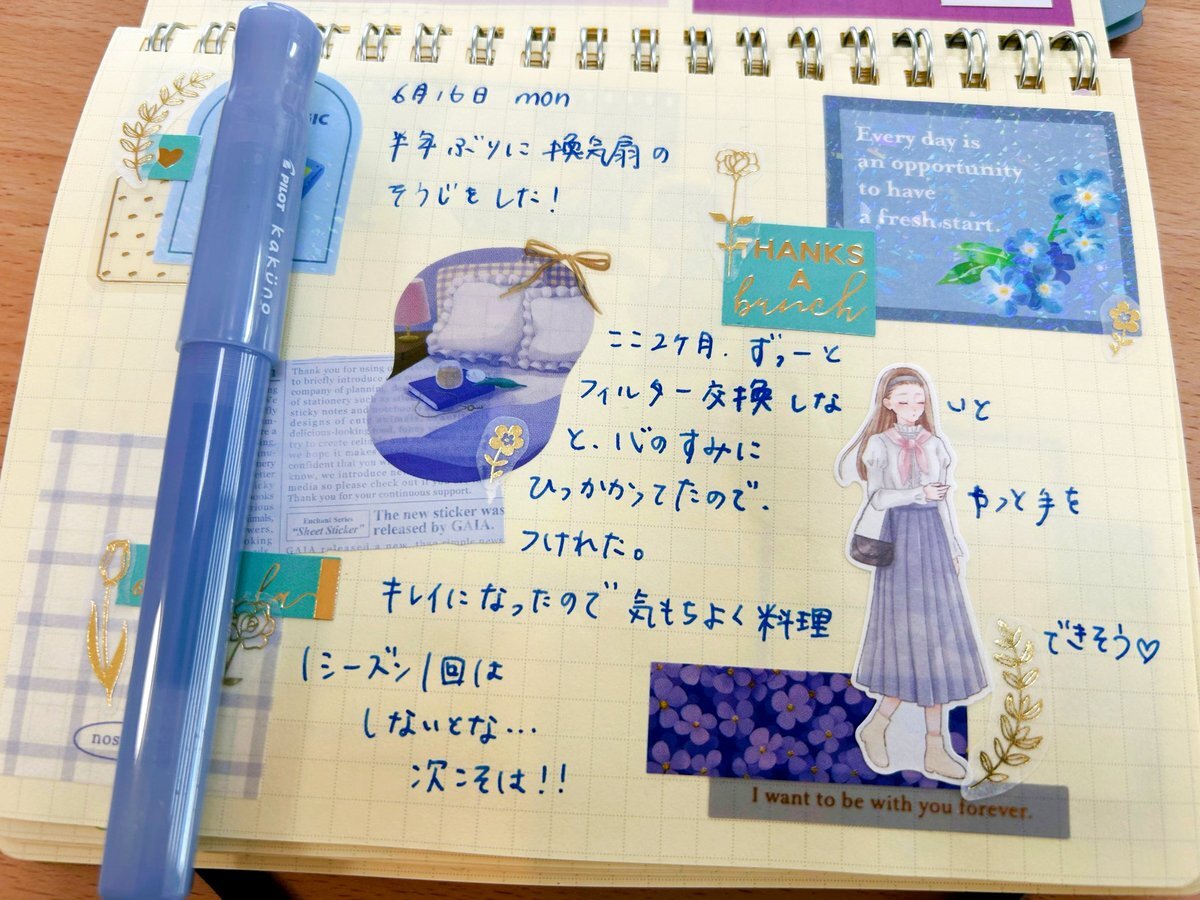 6月16日 mon
半年ぶりに換気扇の
そうじをした!
Every day is
an opportunity
to have
a fresh start.
THANKS
A
bunch
PILOT kaküno
ここ2ケ月. ずっーと
フィルター交換しな いと
と、心のすみに
ひっかかってたので. やっと手を
つけれた。
キレイになったので 気もちよく料理 できそう♡
1シーズン1回は
しないとな…
次こそは!!
Thank you for using
to briefly introduce
company of planning
of stationery
sticky notes and
designs of
delicious-looking
try to create
we hope it makes
confident that you
know, we introduce
media so please check out
Thank you for your continuous support.
Enchant Series
"Sheet Sticker"
The new sticker was
released by GAIA.
GAIA released a new
nos
I want to be with you forever.